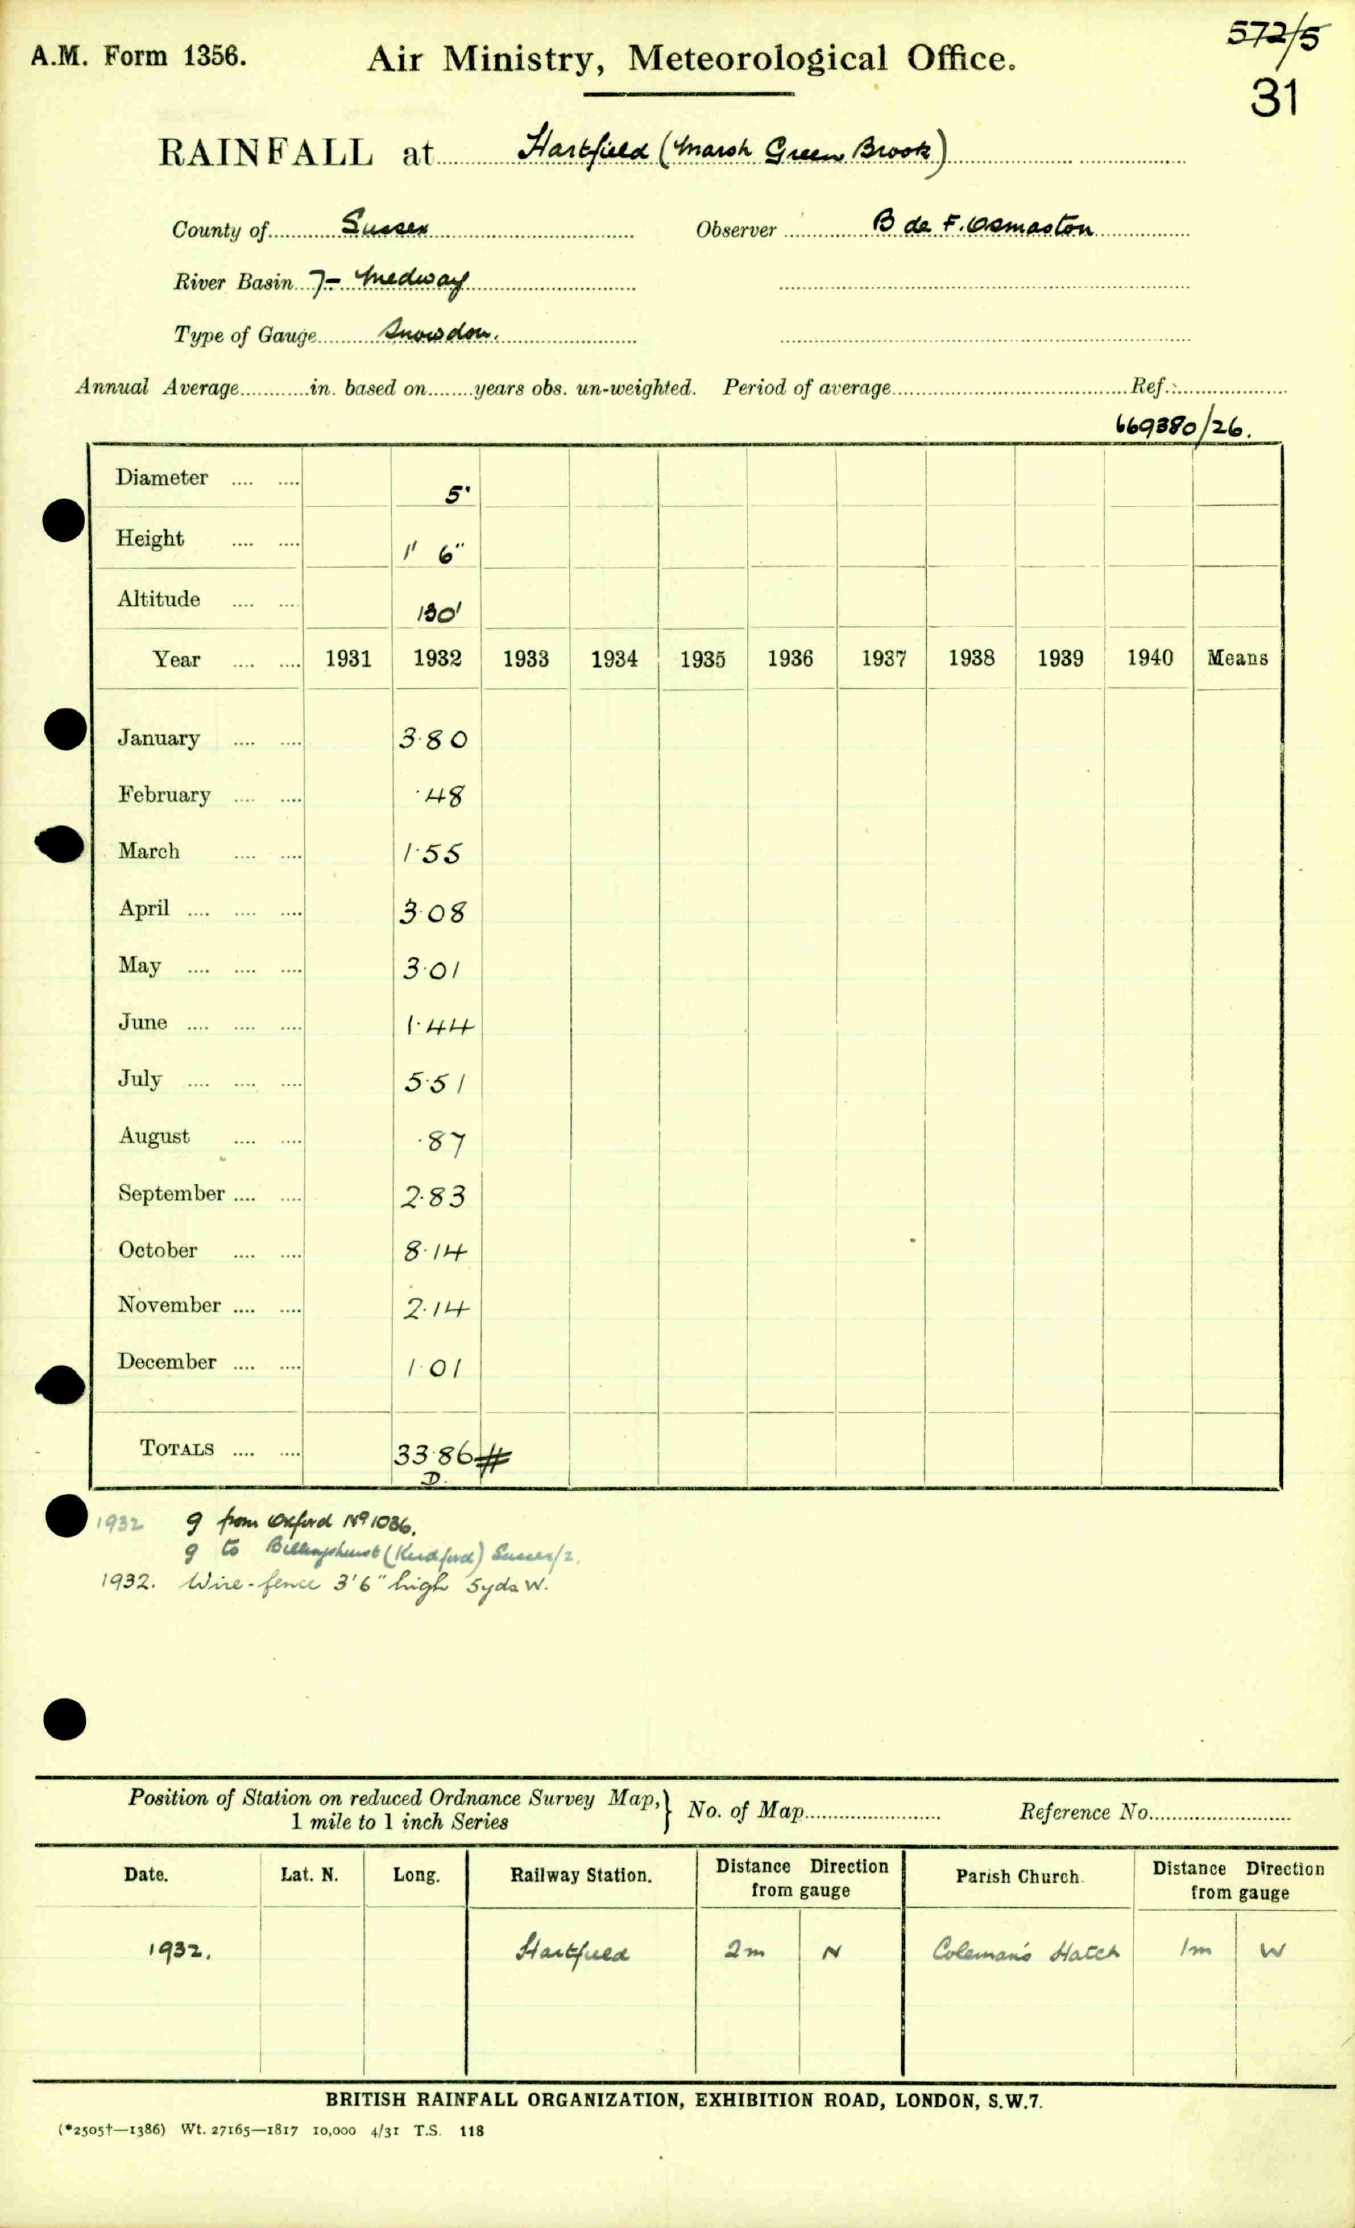 A.M. Form 1356.
Air Ministry, Meteorological Office.
572/5
31
RAINFALL at Hartfield (Marsh Green Brook)
County of Sussex Observer B de F. Osmaston
River Basin 7- Medway
Type of Gauge Snowdon.
Annual Average in. based on years obs. un-weighted. Period of average Ref.:
669380/26.
Diameter 5"
Height 1' 6"
Altitude 130'
Year 1931 1932 1933 1934 1935 1936 1937 1938 1939 1940 Means
January 3.80
February .48
March 1.55
April 3.08
May 3.01
June 1.44
July 5.51
August .87
September 2.83
October 8.14
November 2.14
December 1.01
TOTALS 33.86 #
D.
1932 g from Oxford No 1036.
g to Billingshurst (Kirdford) Sussex/2.
1932. Wire-fence 3'6" high 5yds W.
Position of Station on reduced Ordnance Survey Map, 1 mile to 1 inch Series } No. of Map Reference No.
Date. Lat. N. Long. Railway Station. Distance Direction from gauge Parish Church. Distance Direction from gauge
1932. Hartfield 2m N Coleman's Hatch 1m W
BRITISH RAINFALL ORGANIZATION, EXHIBITION ROAD, LONDON, S.W.7.
(*2505†—1386) Wt. 27165—1817 10,000 4/31 T.S. 118